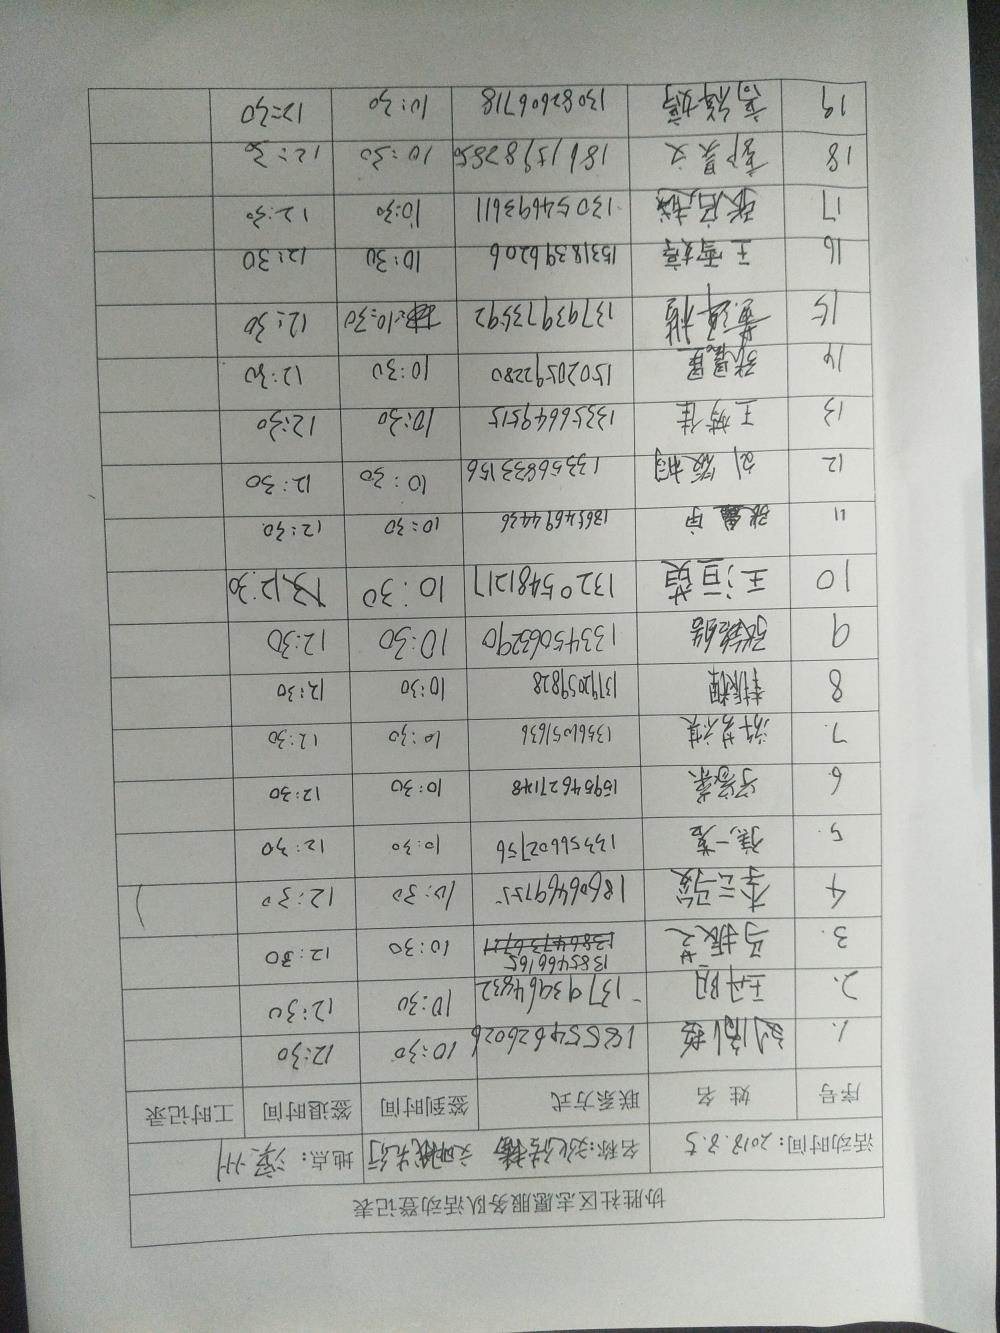 协胜社区志愿服务队活动登记表
活动时间：2018.8.5 名称： 先行 地点：滨州
序号 姓名 联系方式 签到时间 签退时间 工时记录
1. 18554626026 10:30 12:30
2. 王丹阳 13793964832 10:30 12:30
3. 马振芝 1385466165 13864736721 10:30 12:30
4 李云骏 18606469755 10:30 12:30
5. 一 13356602756 10:30 12:30
6. 15954627148 10:30 12:30
7. 许艺祺 13561051636 10:30 12:30
8 韩辉 13792059828 10:30 12:30
9 13345063290 10:30 12:30
10 王洹萸 13205481217 10:30 12:30
11 张鑫宇 13654694436 10:30 12:30
12 刘 桐 13356833156 10:30 12:30
13 王梦佳 13356649515 10:30 12:30
14 张晨星 15020592280 10:30 12:30
15 黄 13793973592 10:30 12:30
16 王雪婷 15318396206 10:30 12:30
17 张启越 13054693611 10:30 12:30
18 郭昊文 18615982850 10:30 12:30
19 高祥婷 13082606718 10:30 12:30